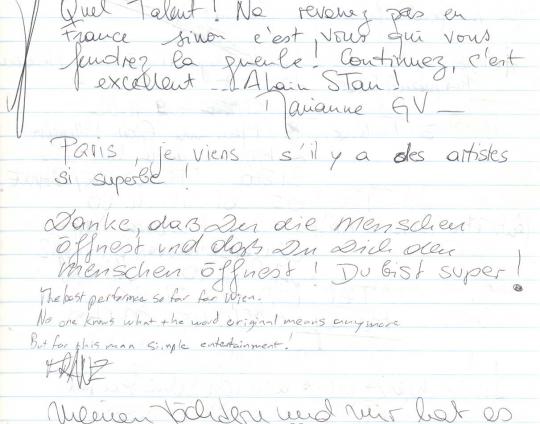 Quel Talent! Ne revenez pas en
France sinon c'est vous qui vous
fendrez la gueule! Continuez, c'est
excellent Alain Stan!
Marianne GV
Paris, je viens s'il y a des artistes
si superbe!
Danke, daß Du die Menschen
öffnest und daß Du Dich den
Menschen öffnest! Du bist super!
The best performce so far for Wien.
No one knows what the word original means anymore
But for this mann simple entertainment!
FRANZ
Meinen Töchtern und mir hat es